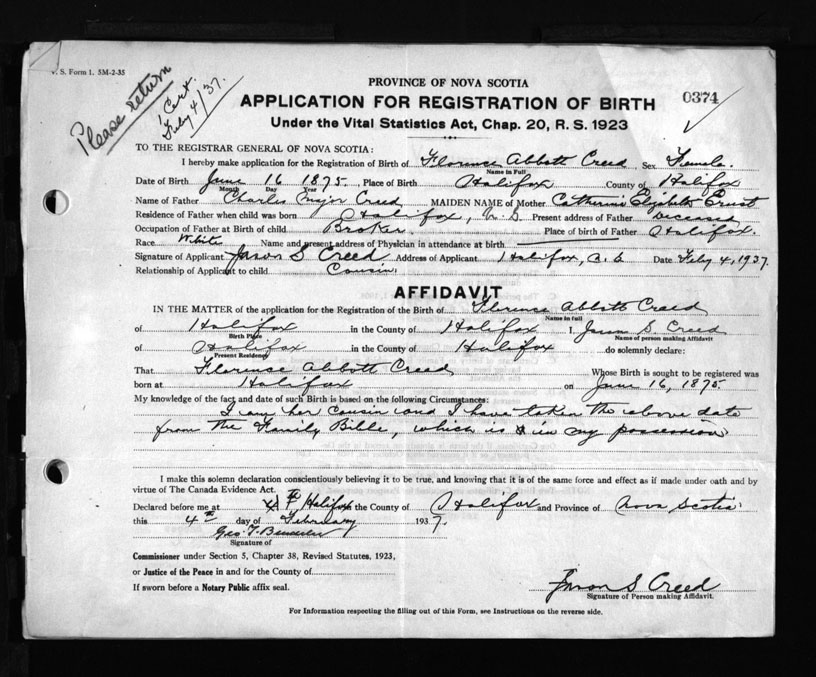 V. S. Form 1. 5M-2-35
Please return
1 Cert.
Feby 4/37.
PROVINCE OF NOVA SCOTIA
APPLICATION FOR REGISTRATION OF BIRTH
0374
Under the Vital Statistics Act, Chap. 20, R. S. 1923
TO THE REGISTRAR GENERAL OF NOVA SCOTIA:
I hereby make application for the Registration of Birth of Florence Abbott Creed Sex Female.
Name in Full
Date of Birth June 16 1875. Place of Birth Halifax County of Halifax
Month Day Year
Name of Father Charles Major Creed MAIDEN NAME of Mother Catherine Elizabeth
Residence of Father when child was born Halifax, N. S. Present address of Father Deceased
Occupation of Father at Birth of child Broker. Place of birth of Father Halifax.
Race White Name and present address of Physician in attendance at birth
Signature of Applicant Jason S Creed Address of Applicant Halifax, Date Feby 4, 1937.
Relationship of Applicant to child Cousin.
AFFIDAVIT
IN THE MATTER of the application for the Registration of the Birth of Florence Abbott Creed
Name in full
of Halifax in the County of Halifax I, Jason S Creed
Birth Place Name of person making Affidavit
of Halifax in the County of Halifax do solemnly declare:
Present Residence
That Florence Abbott Creed Whose Birth is sought to be registered was
born at Halifax on June 16, 1875
My knowledge of the fact and date of such Birth is based on the following Circumstances:
I am her cousin and I have taken the above date
from the Family Bible, which is in my possession
I make this solemn declaration conscientiously believing it to be true, and knowing that it is of the same force and effect as if made under oath and by
virtue of The Canada Evidence Act.
Declared before me at Halifax the County of Halifax and Province of Nova Scotia
this 4th day of February 1937.
Geo. T.
Signature of
Commissioner under Section 5, Chapter 38, Revised Statutes, 1923,
or Justice of the Peace in and for the County of
If sworn before a Notary Public affix seal.
Jason S Creed
Signature of Person making Affidavit.
For Information respecting the filling out of this Form, see Instructions on the reverse side.